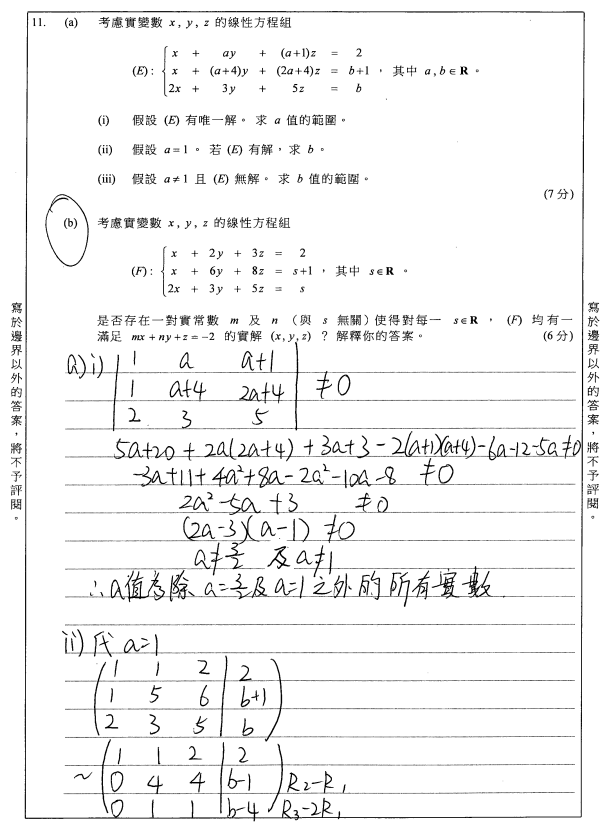 11. (a) 考慮實變數 x, y, z 的線性方程組
x + ay + (a+1)z = 2
(E): x + (a+4)y + (2a+4)z = b+1 , 其中 a, b ∈ R 。
2x + 3y + 5z = b
(i) 假設 (E) 有唯一解。求 a 值的範圍。
(ii) 假設 a = 1 。若 (E) 有解，求 b 。
(iii) 假設 a ≠ 1 且 (E) 無解。求 b 值的範圍。
(7 分)
(b) 考慮實變數 x, y, z 的線性方程組
x + 2y + 3z = 2
(F): x + 6y + 8z = s+1 , 其中 s ∈ R 。
2x + 3y + 5z = s
是否存在一對實常數 m 及 n （與 s 無關）使得對每一 s ∈ R ， (F) 均有一
滿足 mx + ny + z = −2 的實解 (x, y, z) ？解釋你的答案。 (6 分)
寫於邊界以外的答案，將不予評閱。
寫於邊界以外的答案，將不予評閱。
a) i) | 1 a a+1 |
| 1 a+4 2a+4 | ≠0
| 2 3 5 |
5a+20 + 2a(2a+4) + 3a+3 - 2(a+1)(a+4) - 6a - 12 - 5a ≠0
-3a+11 + 4a²+8a - 2a² - 10a - 8 ≠0
2a² - 5a + 3 ≠0
(2a-3)(a-1) ≠0
a≠3/2 及 a≠1
∴ a值為除 a=3/2 及 a=1 之外的所有實數.
ii) 代 a=1
( 1 1 2 | 2 )
( 1 5 6 | b+1 )
( 2 3 5 | b )
( 1 1 2 | 2 )
~ ( 0 4 4 | b-1 ) R₂-R₁
( 0 1 1 | b-4 ) R₃-2R₁